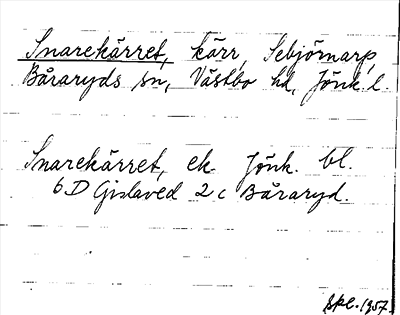 Snarekärret, kärr, Sebjörnarp,
Båraryds sn, Västbo hd, Jönk. l.
Snarekärret, ek. Jönk. bl.
6 D Gislaved 2 c Båraryd.
1957.